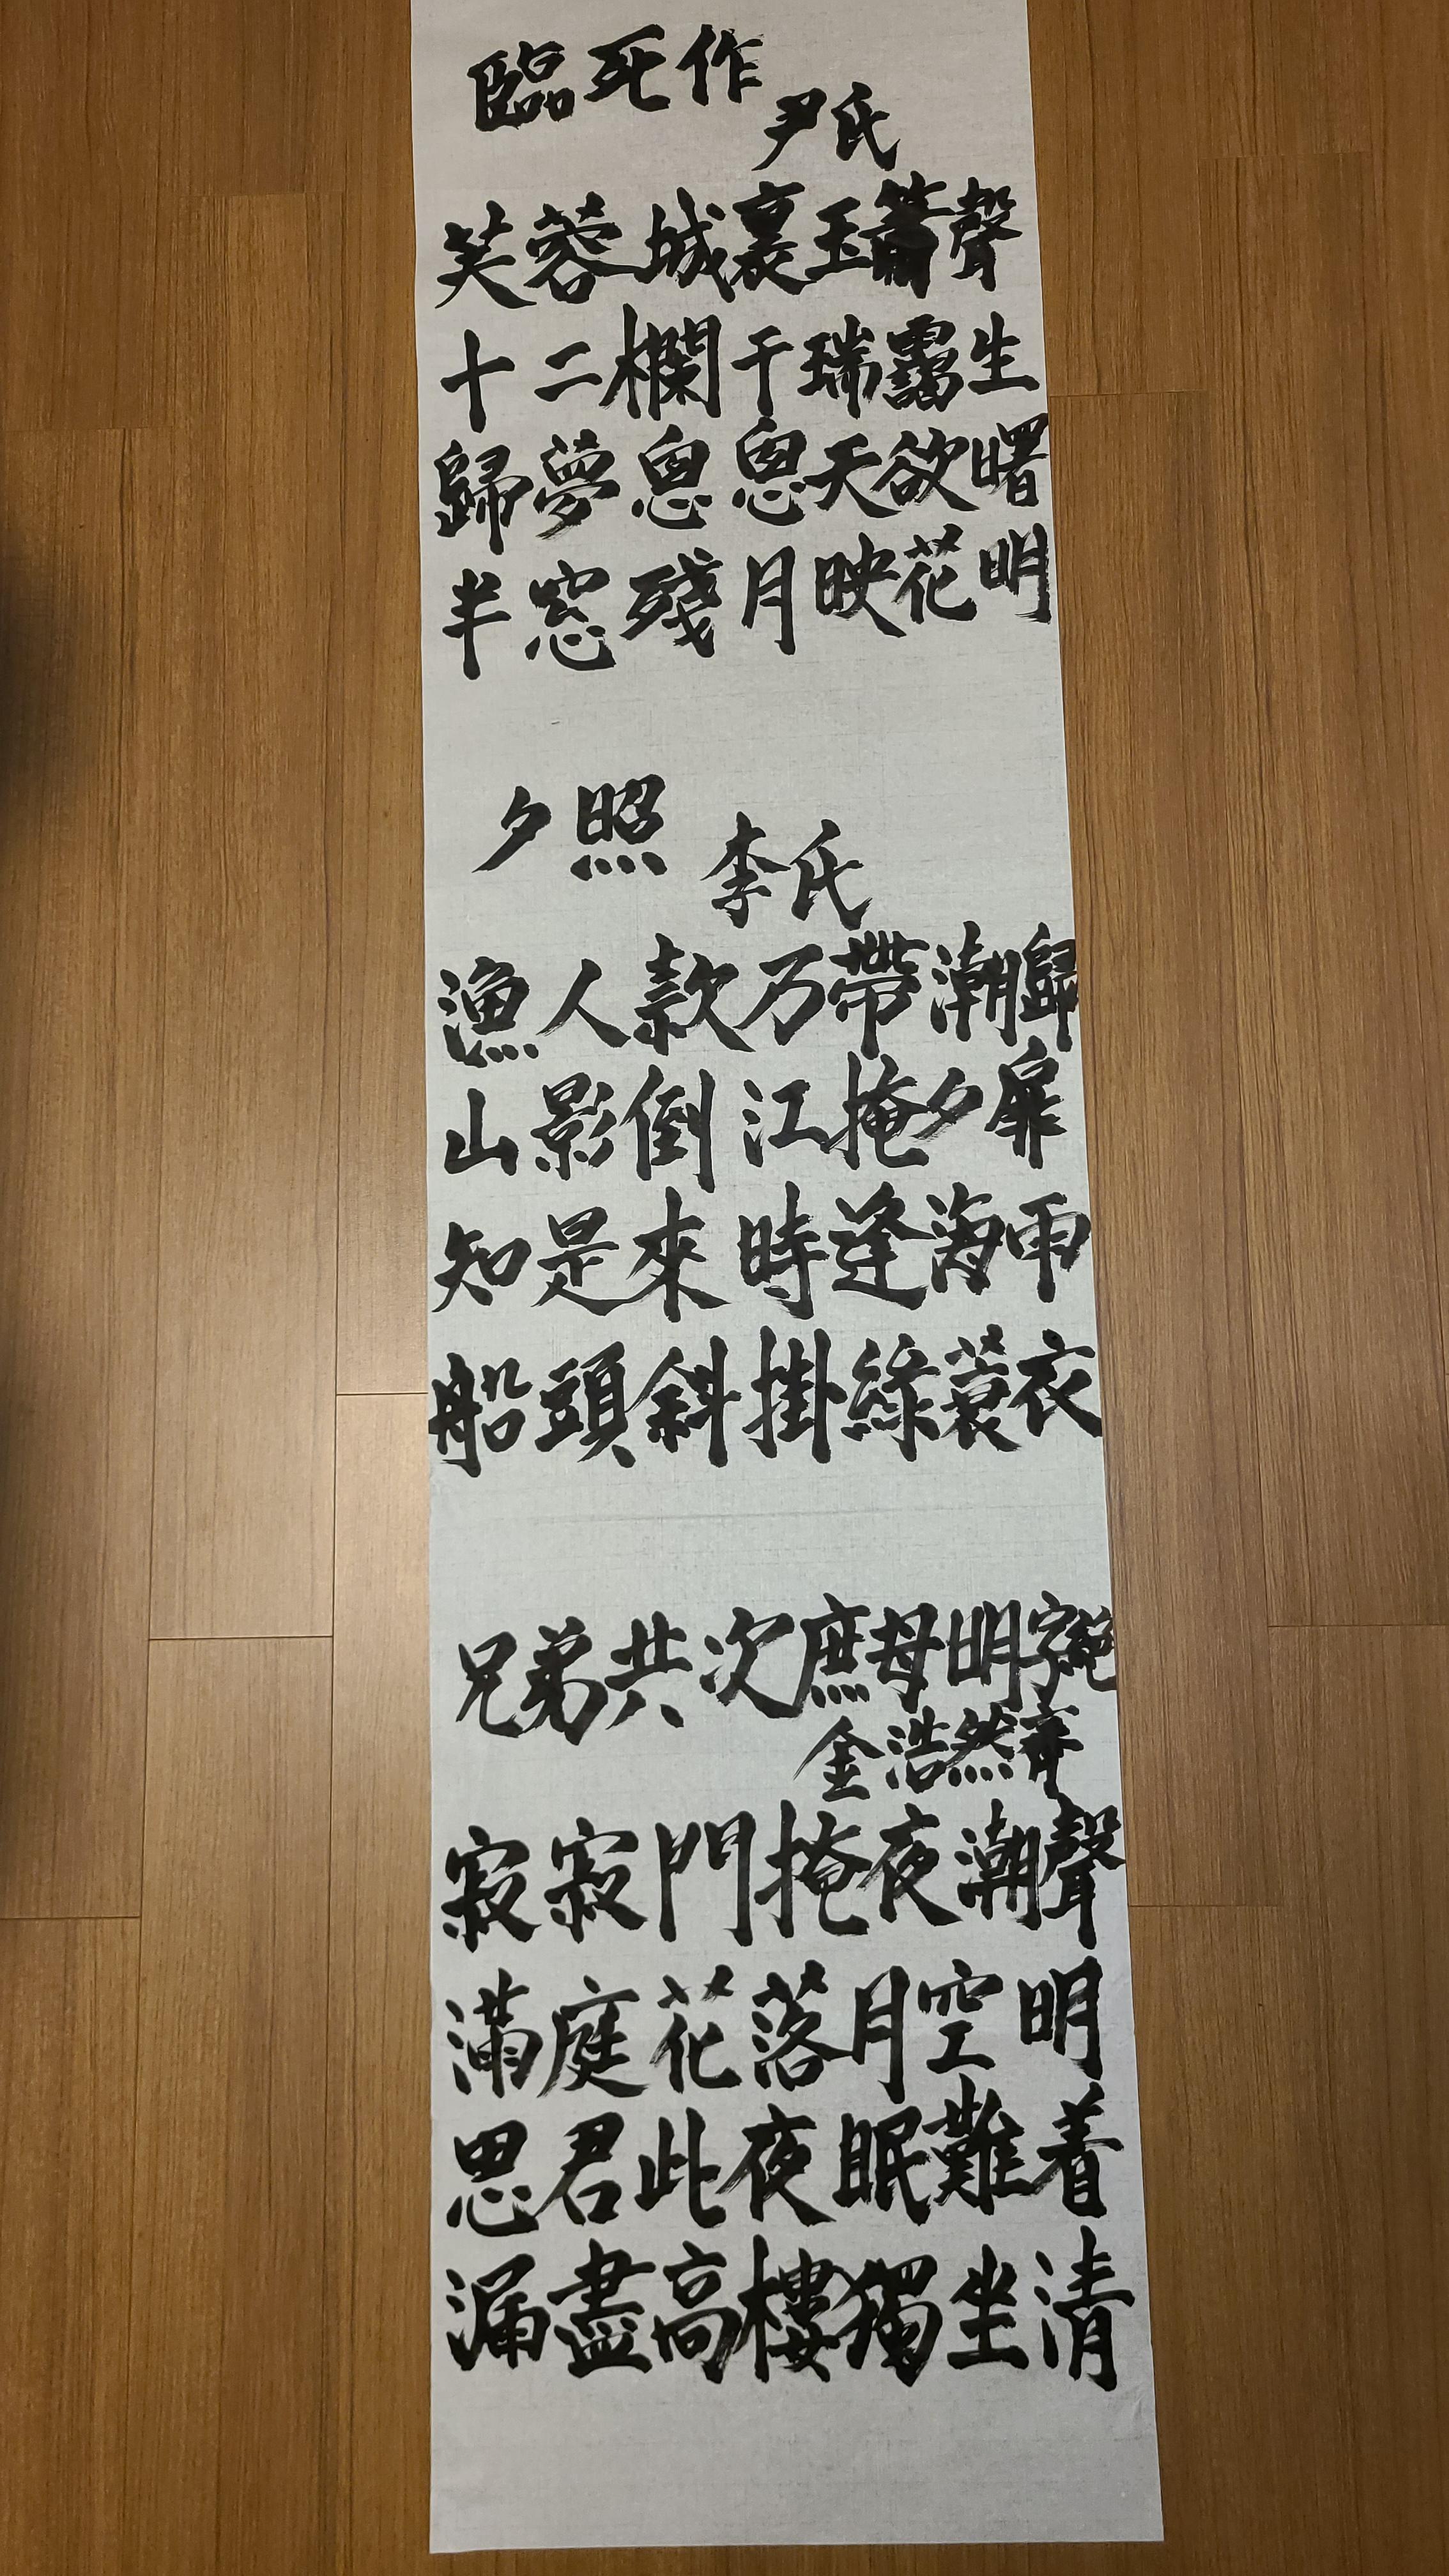 臨死作
尹氏
芙蓉城裏玉簫聲
十二欄干瑞靄生
歸夢悤悤天欲曙
半窓殘月映花明
夕照
李氏
漁人款乃帶潮歸
山影倒江掩夕扉
知是來時逢海雨
船頭斜掛綠蓑衣
兄弟共次庶母明字絶
金浩然齋
寂寂門掩夜潮聲
滿庭花落月空明
思君此夜眠難着
漏盡高樓獨坐清